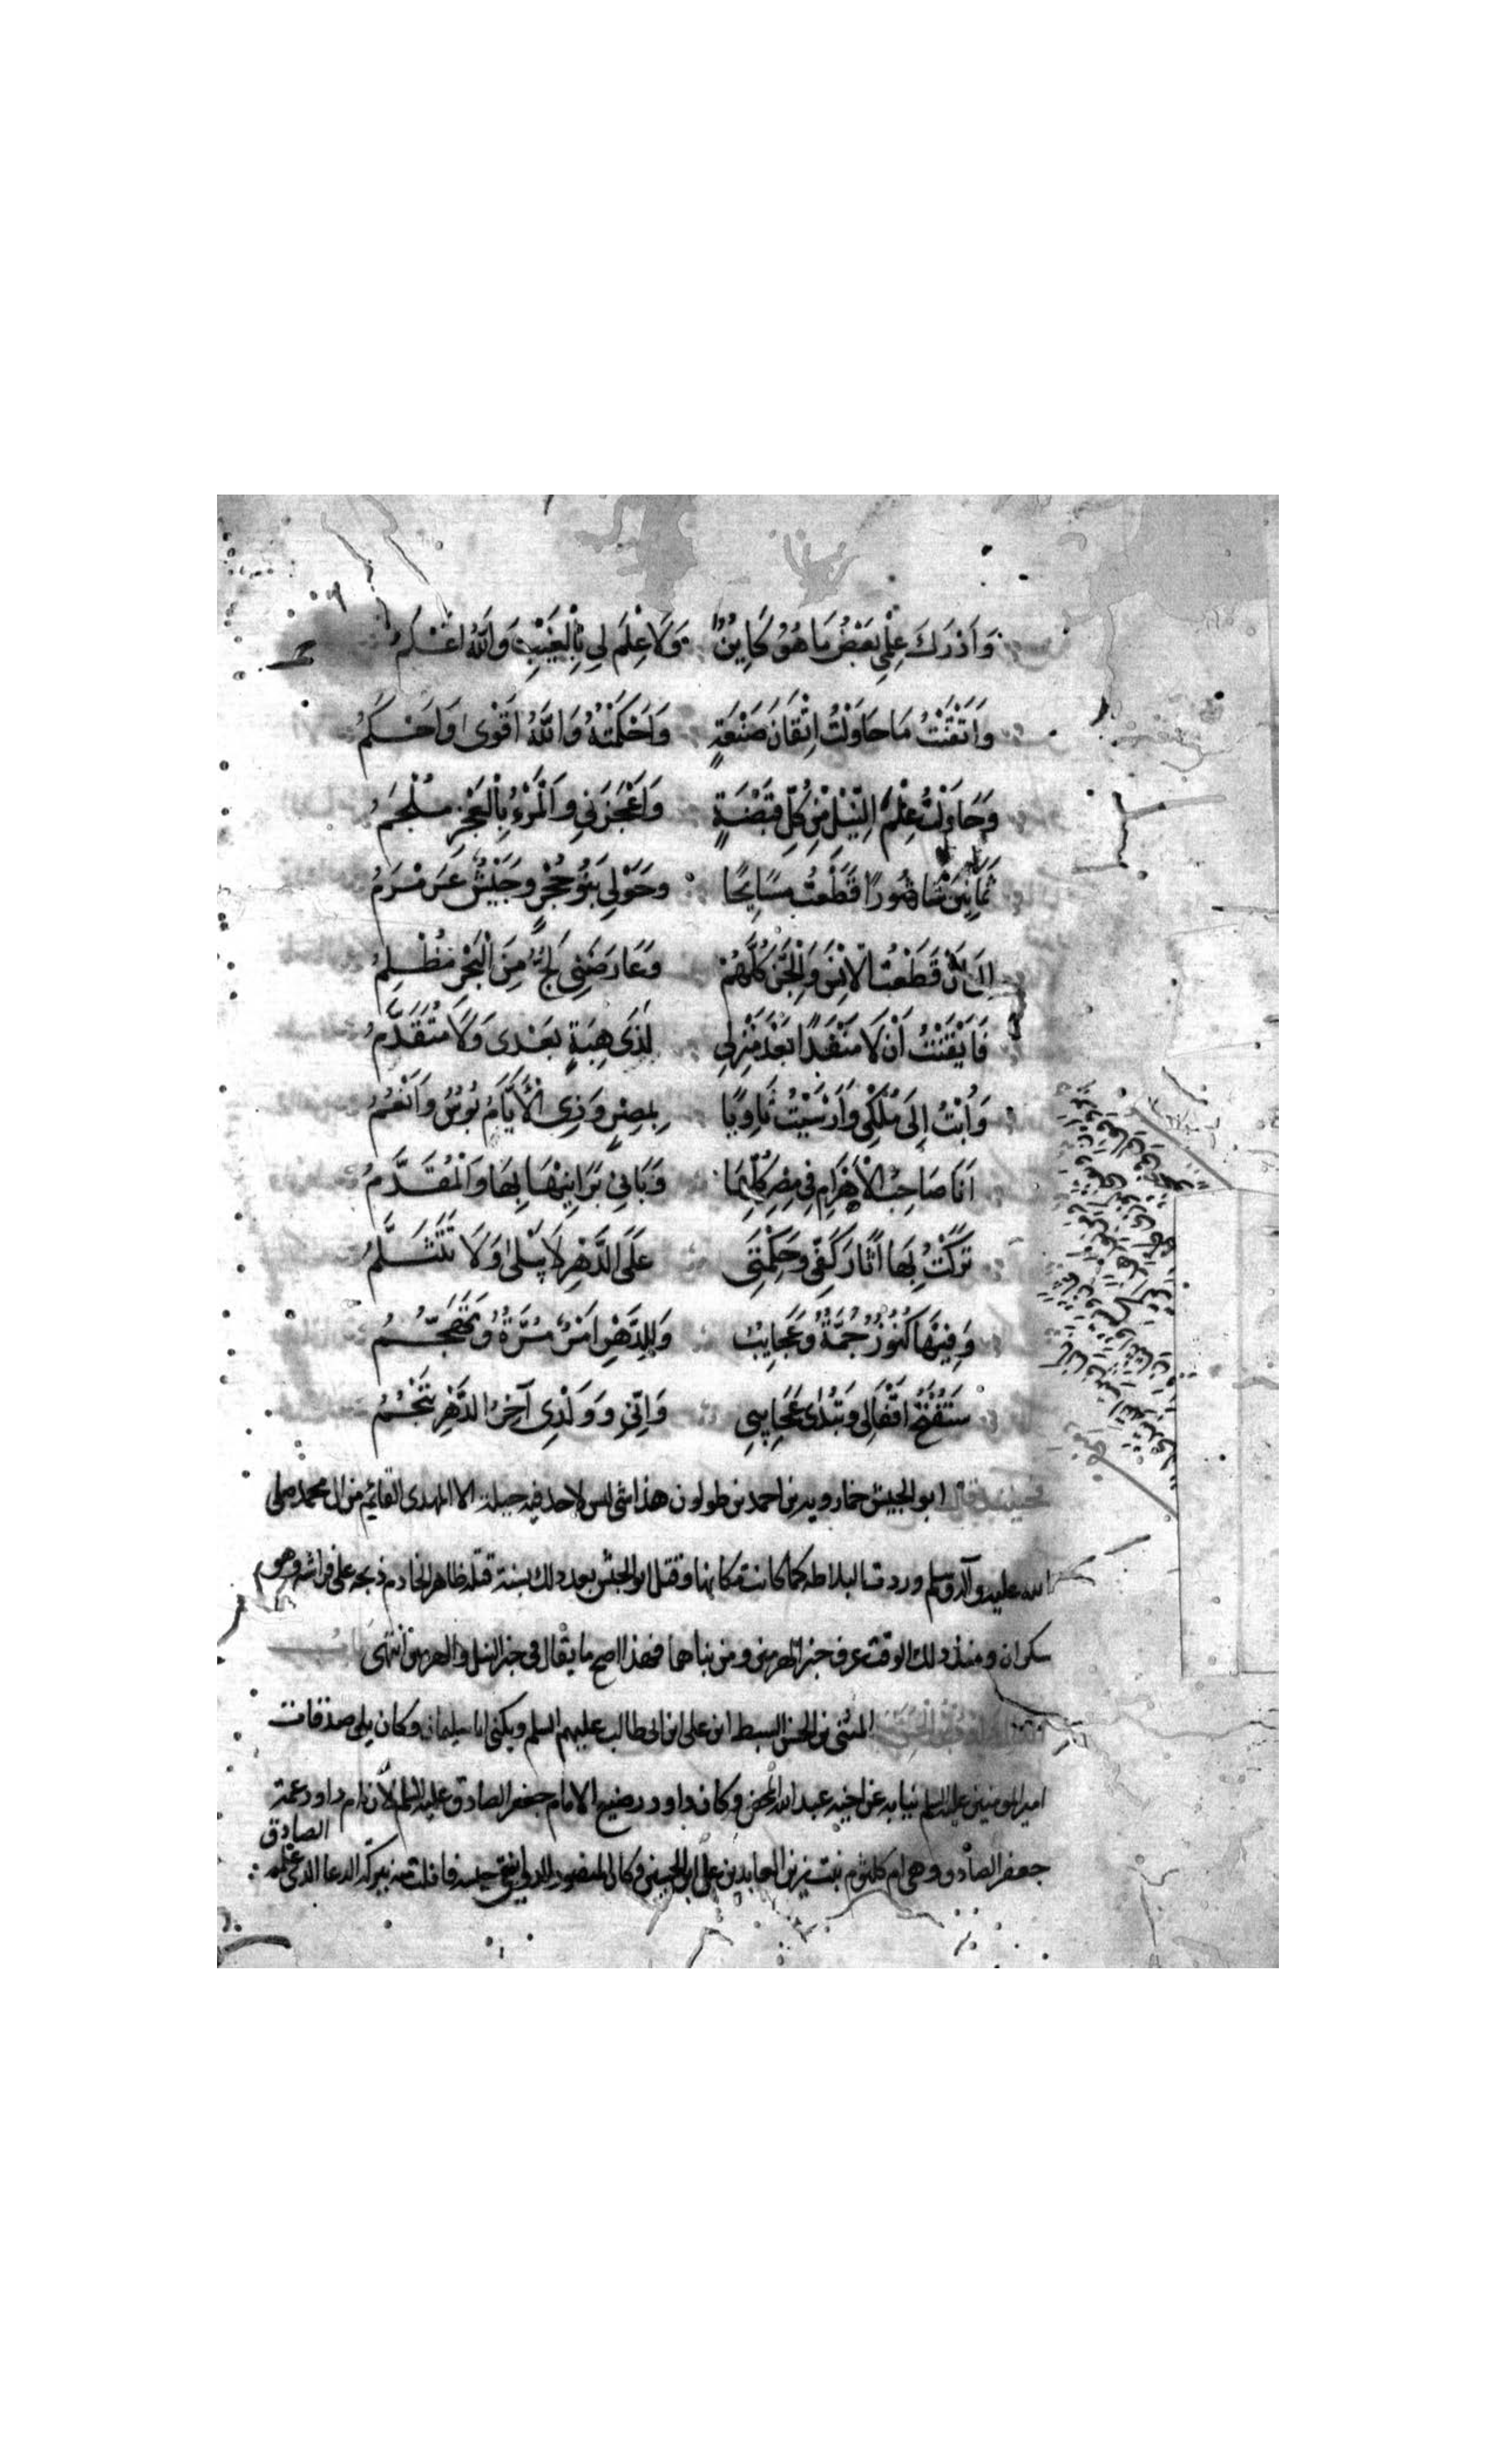 وَاَدْرَكَ عِلْمِي بَعْضَ مَا هُوَ كَايِنٌ وَلَا عِلْمَ لِي بِالْغَيْبِ وَاللّٰهُ اَعْلَمُ
وَاَتْقَنْتُ مَا حَاوَلْتُ اِتْقَانَ صَنْعَةٍ وَاَحْكَمْتُهُ وَاللّٰهُ اَقْوٰى وَاَحْكَمُ
وَحَاوَلْتُ عِلْمَ النِّيْلِ مِنْ كُلِّ قَبْضَةٍ وَاَعْجَزَنِي وَالْمَرْءُ بِالْعَجْزِ مُلْجَمُ
ثَمَانِيْنَ شَاهُورًا قَطَعْتُ مَسَايِحًا وَحَوْلِي بَنُوْ حُجْرٍ وَجَيْشٌ عَرَمْرَمُ
اِلَى اَنْ قَطَعْتُ الْاِنْسَ وَالْجِنَّ كُلَّهُمْ وَعَارَضَنِي لُجٌّ مِنَ الْبَحْرِ مُظْلِمُ
فَاَيْقَنْتُ اَنْ لَا مَنْفَذًا بَعْدَ مَنْزِلِي لِذِى هِبَةٍ بَعْدِى وَلَا مُتَقَدَّمُ
وَاُبْتُ اِلَى مُلْكِي وَاَرْسَيْتُ ثَاوِيًا بِمِصْرٍ وَذِى الْاَيَّامُ بُوْسٌ وَاَنْعُمُ
اَنَا صَاحِبُ الْاَهْرَامِ فِي مِصْرَ كُلِّهَا وَبَانِي بَرَابِيْهَا بِهَا وَالْمُقَدَّمُ
تَرَكْتُ بِهَا اٰثَارَ كَفِّي وَحِكْمَتِي عَلَى الدَّهْرِ لَا يَبْلٰى وَلَا تَتَثَلَّمُ
وَفِيْهَا كُنُوْزٌ جُمَّةٌ وَعَجَايِبُ وَلِلدَّهْرِ اَمْرٌ مُرَّةٌ وَتَهَجُّمُ
سَتُفْتَحُ اَقْفَالِي وَتُبْدٰى عَجَايِبِي وَاِنِّي وَوَلَدِى آخِرُ الدَّهْرِ تَنْجُمُ
فقال ابو الجيش خمارويه بن احمد بن طولون هذا شي ليس لاحد فيه حيلة الا المهدى القايم من ال محمد صلى
الله عليه وآله وسلم وردت البلاطه كما كانت مكانها وقتل ابو الجيش بعد ذلك بسنة قتله طاهر الخادم ذبحه على فراشه وهو
سكران ومنذ ذلك الوقت عرف خبر الهرمين ومن بناهما فهذا اصح ما يقال في خبر النيل والهرمين انتهى
المثنى بن الحسن السبط ابن على ابن ابى طالب عليهم السلم ويكنى ابا سليمان وكان يلى صدقات
امير المومنين عليه السلم نيابه عن اخيه عبد الله المحض وكان داود رضيع الامام جعفر الصادق عليه السلم لان ام داود عمة
الصادق
جعفر الصادق وهى ام كلثوم بنت زين العابدين على ابن الحسين وكان المنصور الدوانيقي حبسه فافلت منه ببركه الدعا الذى علمه